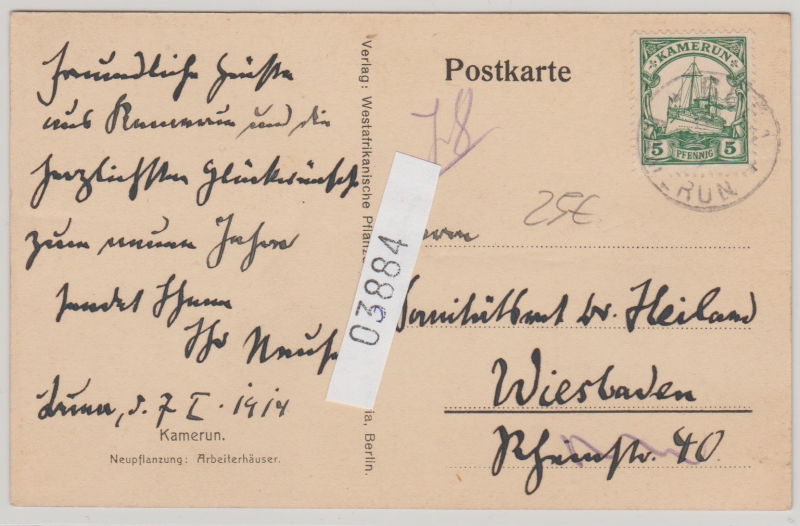 freundliche Grüße
aus Kamerun und die
herzlichsten Glückwünsche
zum neuen Jahre
sendet Ihnen
Ihr
d. 7 I. 1914
Kamerun.
Neupflanzung: Arbeiterhäuser.
Verlag: Westafrikanische Pflanz
ia, Berlin.
03884
Postkarte
25€
KAMERUN
5 PFENNIG 5
ERUN
Sanitätsrat Dr. Heiland
Wiesbaden
Rheinstr. 40